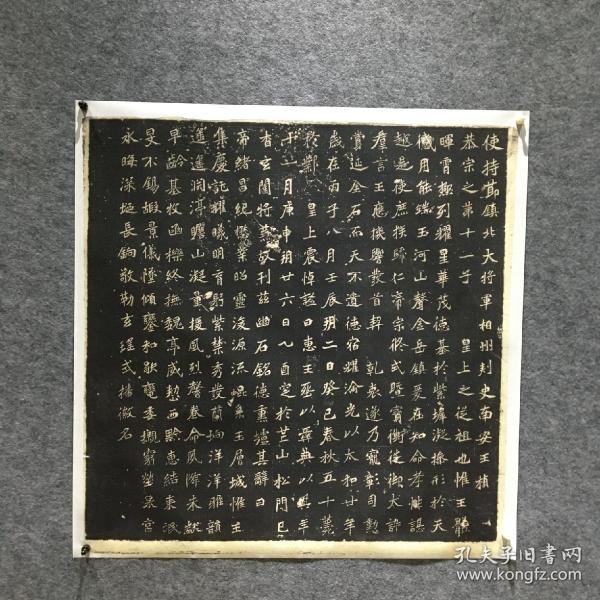 使持節鎮北大將軍相州刺史南安王楨
恭宗之第十一子 皇上之從祖也惟王體
暉霄極列耀星華茂德基於紫墀凝操形於天
儀用能端玉河山聲金岳鎮爰在知命孝性諶
越是使庶族歸仁帝宗攸式暨寶衡徙御大訊
羣言王應機響發首契 乾衷遂乃寵彰司勳
賞延金石而天不遺德宿耀淪光以太和廿年
歲在丙子八月壬辰朔二日癸巳春秋五十薨
於鄴 皇上震悼謚曰惠王葬以彝典以其年
十一月庚申朔廿六日乙酉窆於芒山松門已
杳玄闥將蕪故刊茲幽石銘德熏壚其辭曰
帝緒昌紀懋業昭靈浚源流崐系玉層城惟王
集慶託耀曦明育躬紫禁秀發蘭坰洋洋雅韻
遥遥淵渟瞻山凝量援風烈馨卷命夙降未黻
早齡基牧幽櫟終撫魏亭威整西黔惠結東氓
旻不錫嘏景儀墜傾鑾和歇轡委櫬窮塋泉宮
永晦深埏長鐍敬勒玄瑤式播徽名
孔夫子旧书网
www.kongfz.com